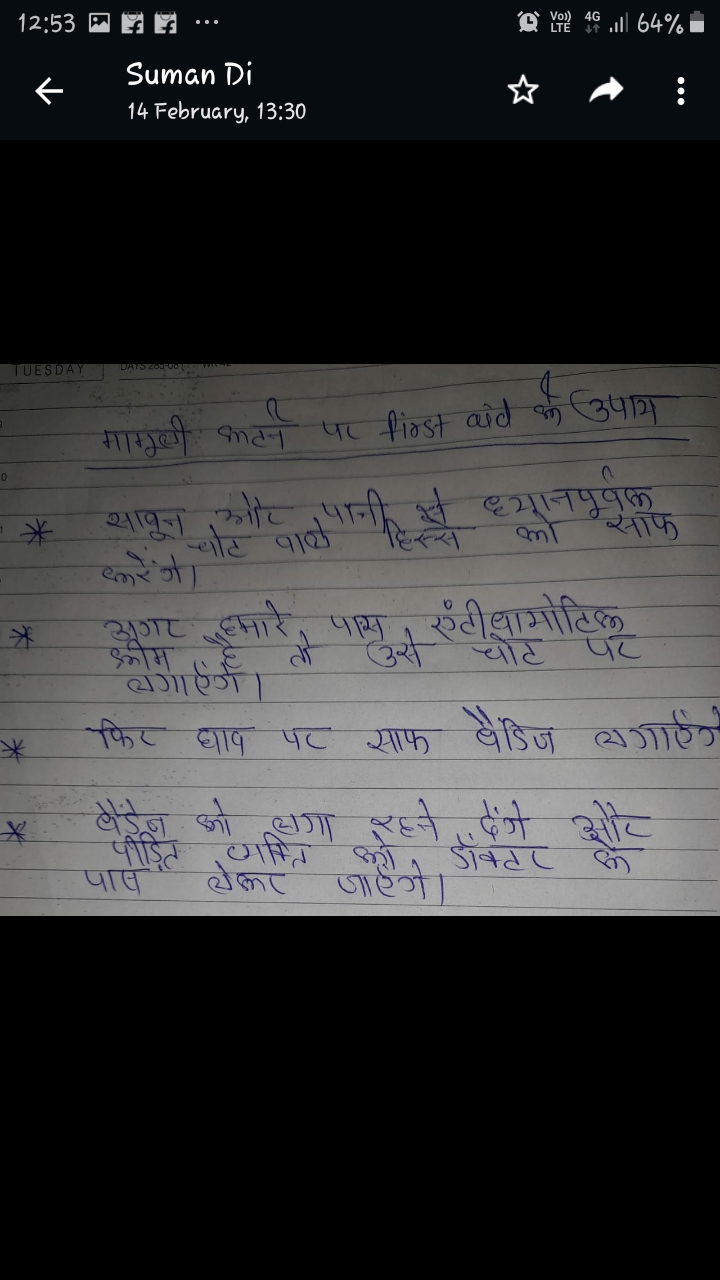 12:53 ... Vo)) LTE 4G 64%
Suman Di
14 February, 13:30
TUESDAY
मामूली कटने पर first aid के उपाय
* साबुन और पानी से ध्यानपूर्वक
चोट वाले हिस्से को साफ
करेंगे।
* अगर हमारे पास एंटीबायोटिक
क्रीम है तो उसे चोट पर
लगाएंगे।
* फिर घाव पर साफ बैंडिज लगाएंगे
* बैंडेज को लगा रहने देंगे और
पीड़ित व्यक्ति को डॉक्टर के
पास लेकर जाएंगे।